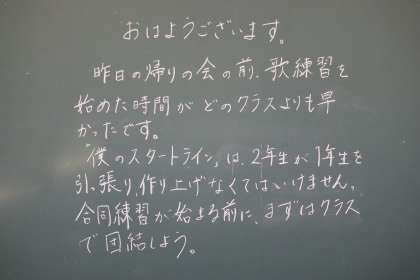 おはようございます。
昨日の帰りの会の前、歌練習を
始めた時間がどのクラスよりも早
かったです。
「僕のスタートライン」は、2年生が1年生を
引っ張り、作り上げなくてはいけません。
合同練習が始まる前に、まずはクラス
で団結しよう。